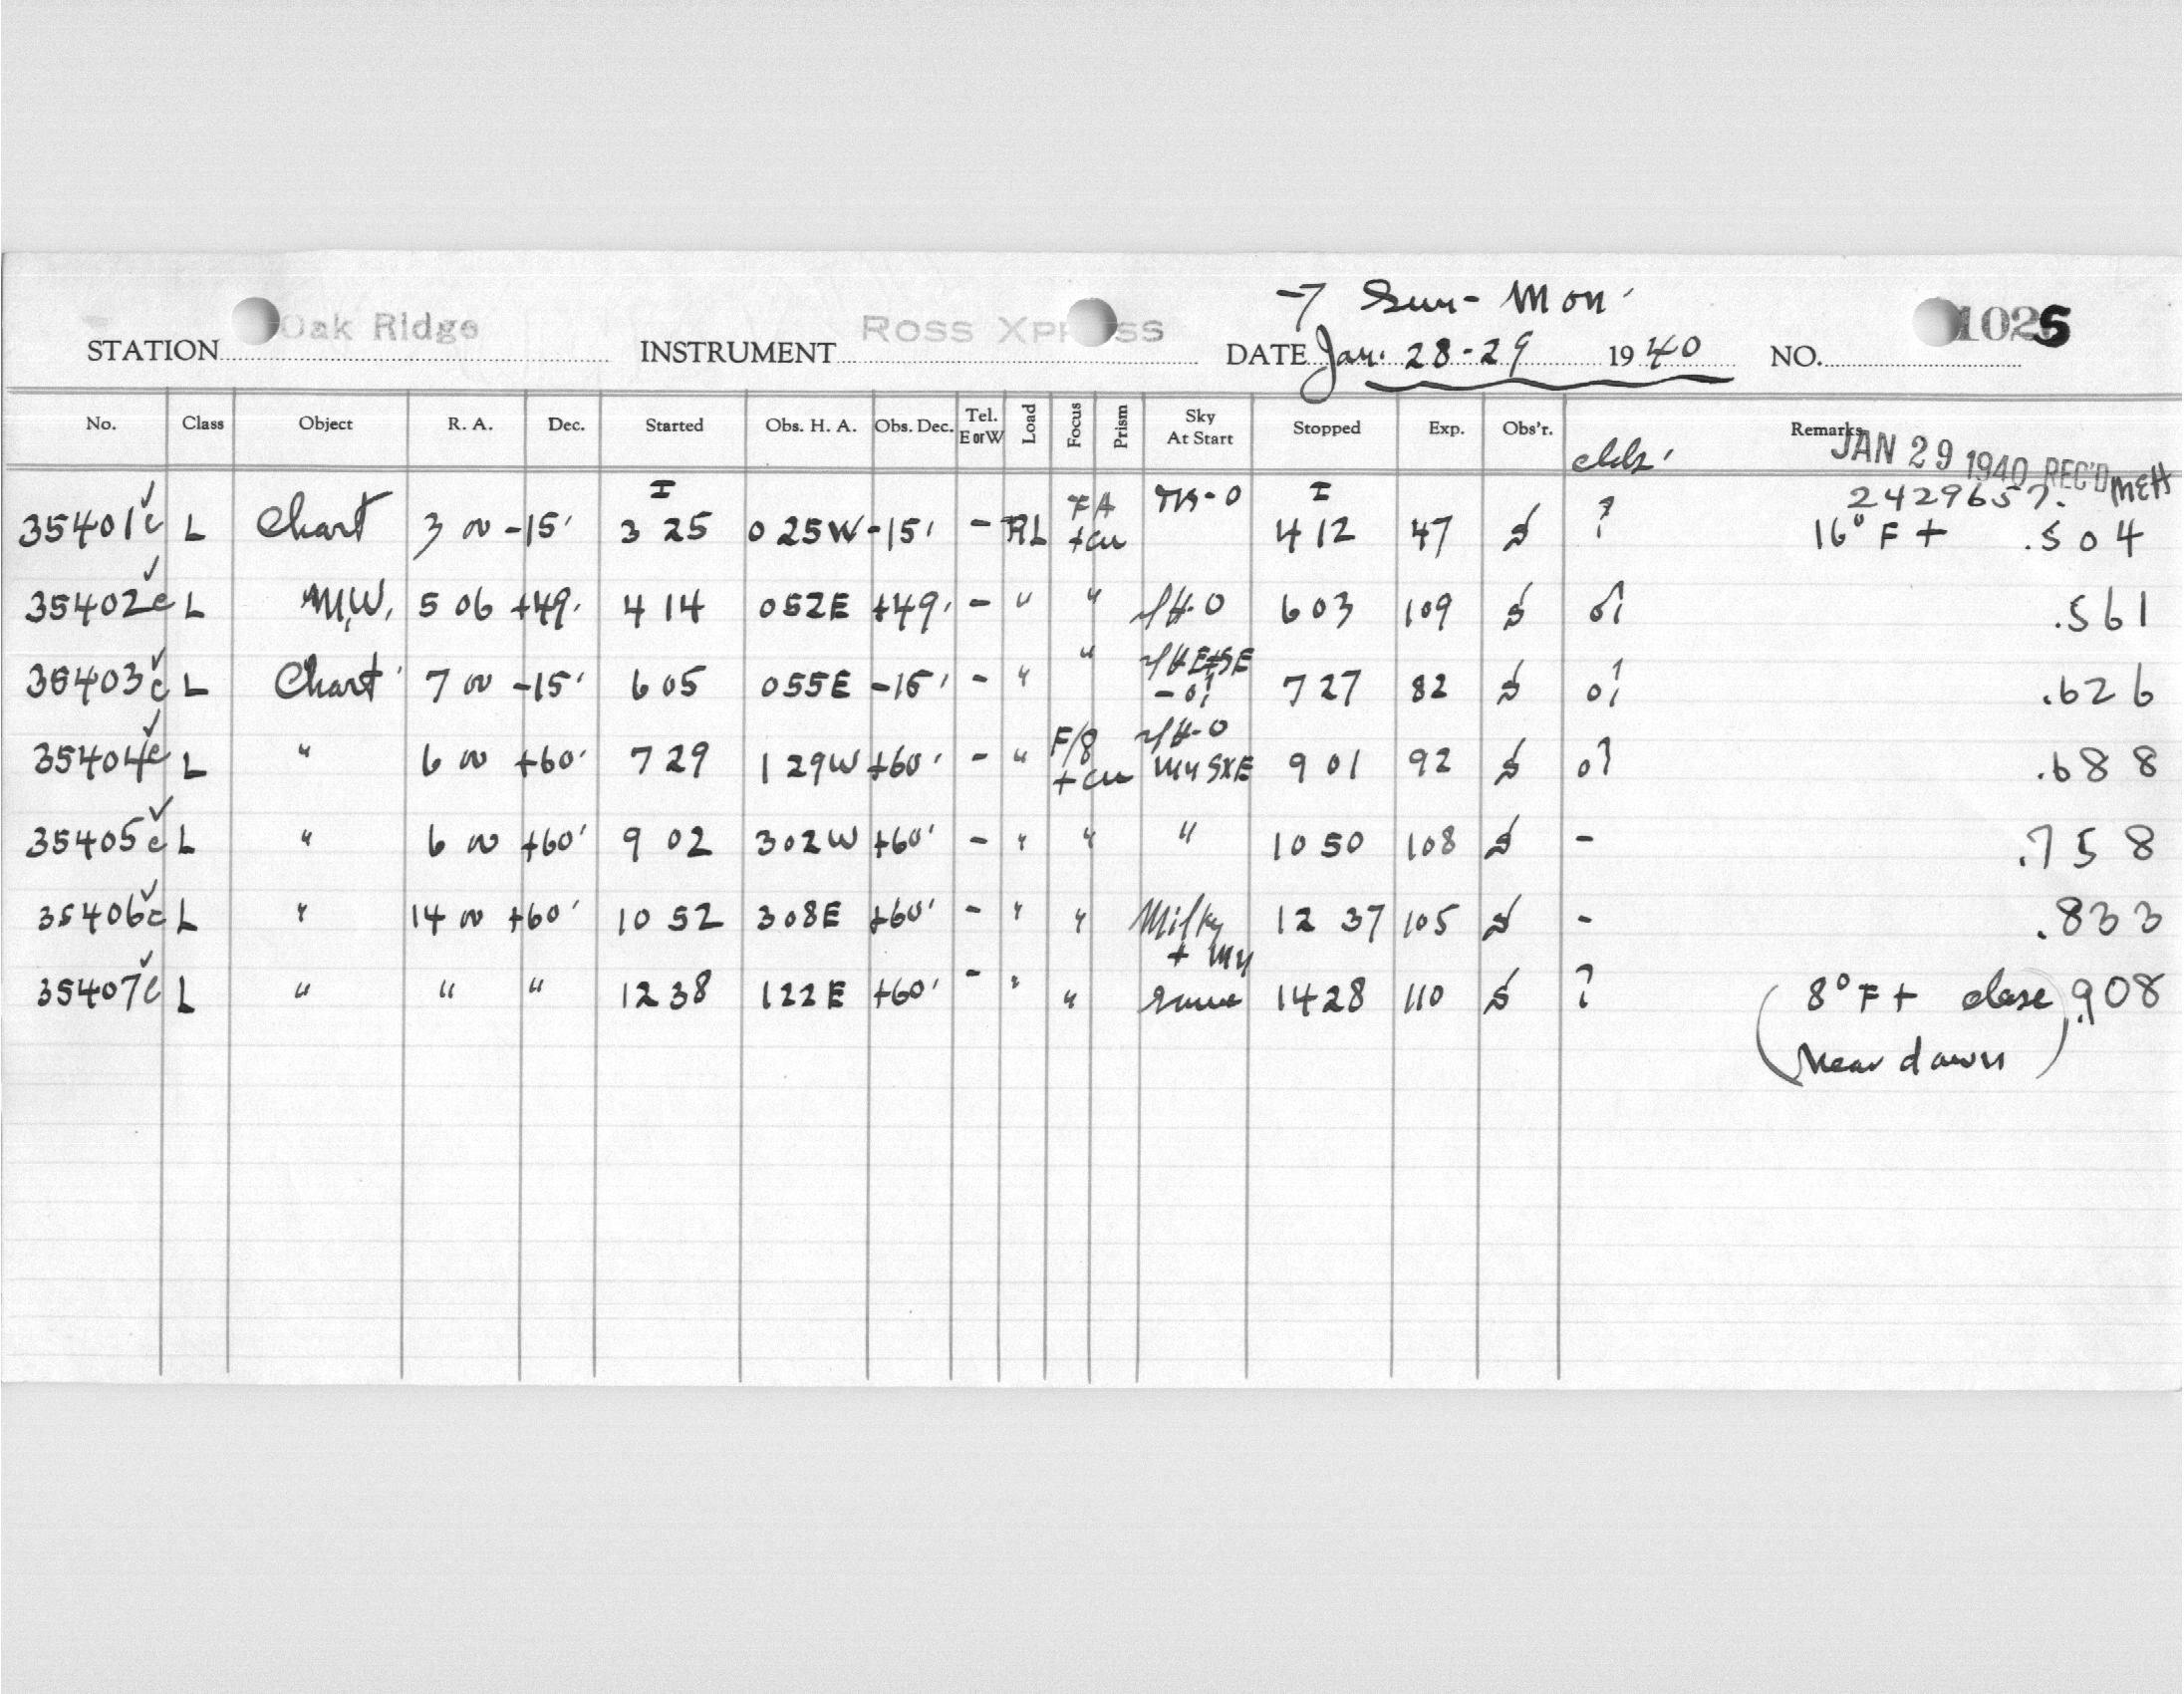 → Sun - Mon.
STATION Oak Ridge INSTRUMENT ROSS XPRESS DATE Jan. 28-29 1940 NO. 1025
No. Class Object R. A. Dec. Started Obs. H. A. Obs. Dec. Tel. E or W Load Focus Prism Sky At Start Stopped Exp. Obs'r. Remarks
JAN 29 1940 REC'D MEH
I I 2429657.
35401c L Chart 3 00 -15° 3 25 0 25W -15° - RL FA 4 12 47 S ? 16° F + .504
35402c L M.W. 5 06 +49° 4 14 0 52E +49° - " " 6 03 109 S 0? .561
35403c L Chart 7 00 -15° 6 05 0 55E -15° - " " - 0? 7 27 82 S 0? .626
35404c L " 6 00 +60° 7 29 1 29W +60° - " F/8 9 01 92 S 0? .688
35405c L " 6 00 +60° 9 02 3 02W +60° - " " " 10 50 108 S - .758
35406c L " 14 00 +60° 10 52 3 08E +60° - " " Milky 12 37 105 S - .833
35407c L " " " 12 38 1 22E +60° - " " same 14 28 110 S ? (8° F + close .908
near dawn)